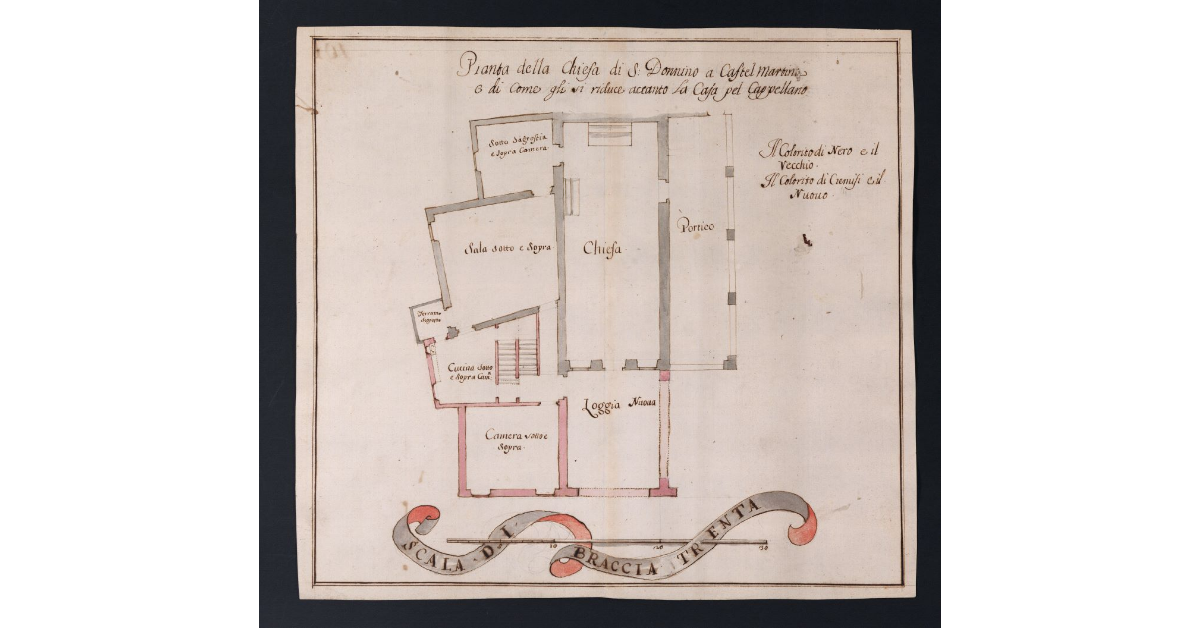 Pianta della Chiesa di S. Donnino a Castel Martini
e di come gli si riduce accanto la Casa pel Cappellano
Il Colorito di Nero e il
Vecchio.
Il Colorito di Cremisi e il
Nuovo
Sotto Sagrestia
e Sopra Camera
Sala sotto e Sopra
Chiesa
Portico
Cucina sotto
e Sopra Cam.ª
Loggia Nuova
Camera sotto e
Sopra.
SCALA DI BRACCIA TRENTA
10
20
30